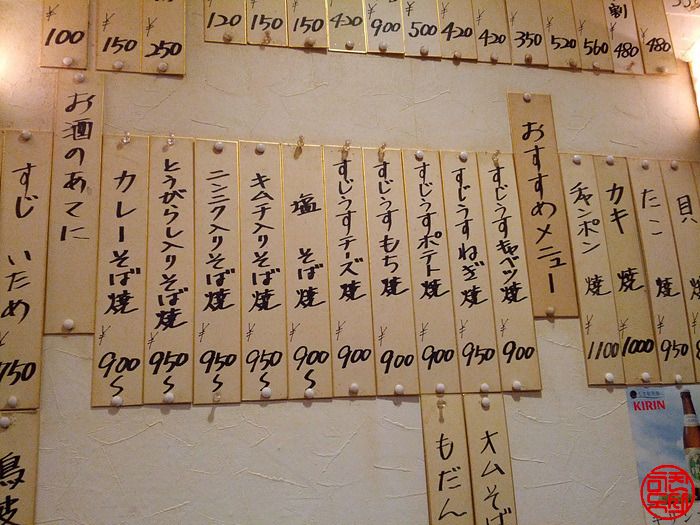 ¥100
¥150
¥250
120
150
150
420
900
500
420
420
350
520
560
割
¥480
¥480
貝
たこ 焼 ¥950
カキ 焼 ¥1000
チャンポン 焼 ¥1100
おすすめメニュー
すじうすキャベツ焼 ¥900
すじうすねぎ焼 ¥950
すじうすポテト焼 ¥900
すじうすもち焼 ¥900
すじうすチーズ焼 ¥900
塩 そば焼 ¥900〜
キムチ入りそば焼 ¥950〜
ニンニク入りそば焼 ¥950〜
とうがらし入りそば焼 ¥950〜
カレーそば焼 ¥900〜
お酒のあてに
すじ いため ¥750
オムそば
もだん
KIRIN